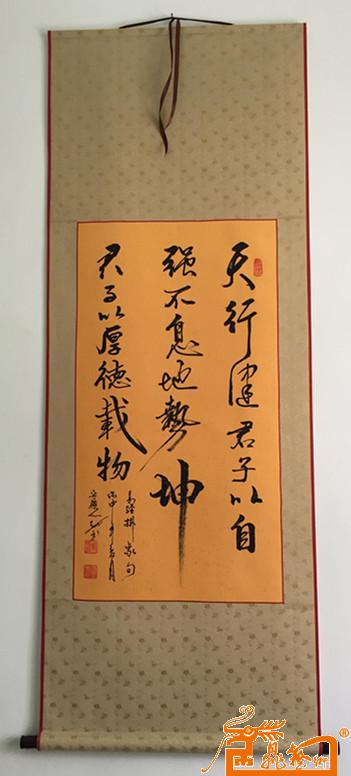 天行健君子以自
强不息地勢坤
君子以厚德載物
易經摘象句
丙申年